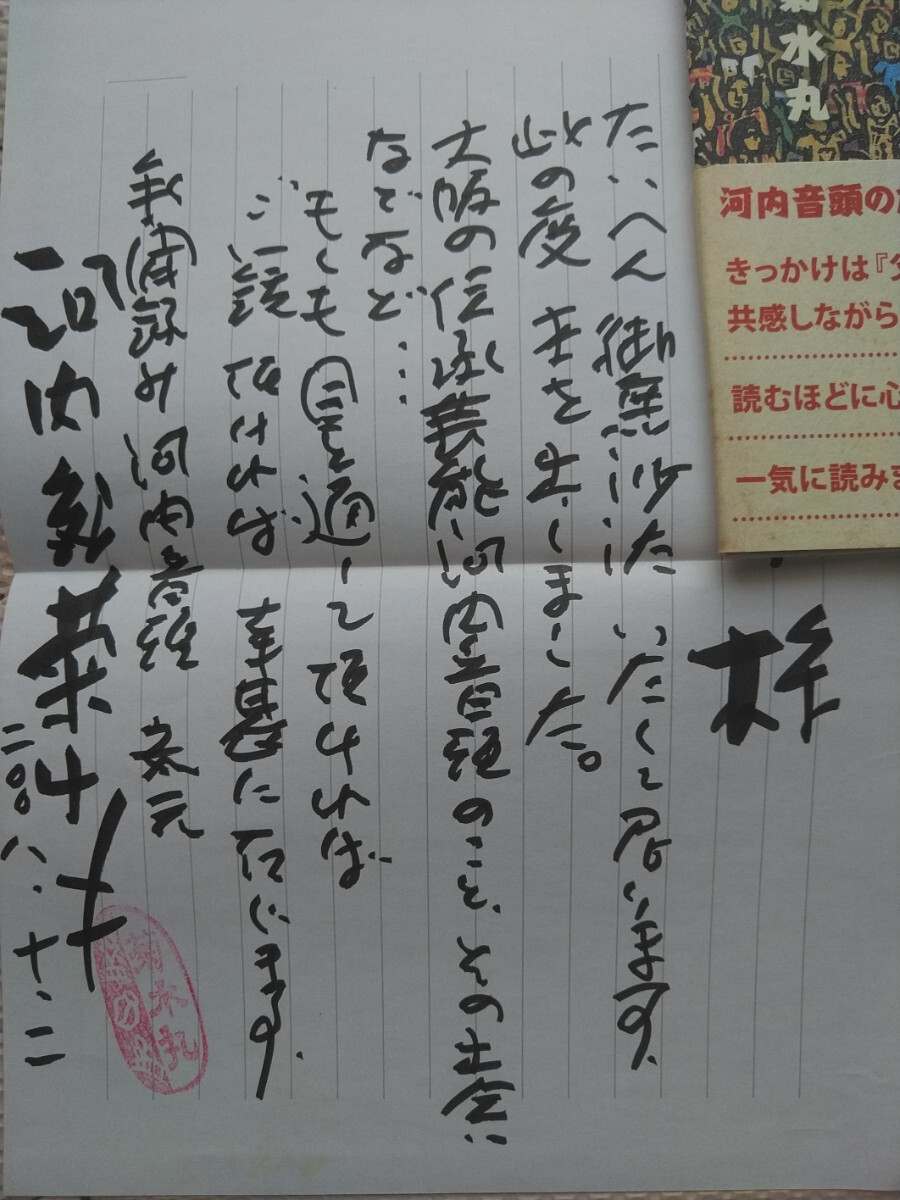 様
たいへん御無沙汰いたして居ります、
此の度 本を出しました。
大阪の伝承芸能河内音頭のこと、その出会い
などなど…
もくも 目を通して頂ければ
ご一読 頂ければ 幸甚に存じます、
新聞詠み河内音頭 家元
河内家菊水丸
二〇〇八.十.二
菊水丸
水丸
河内音頭の
きっかけは『
共感しながら
読むほどに心
一気に読みま